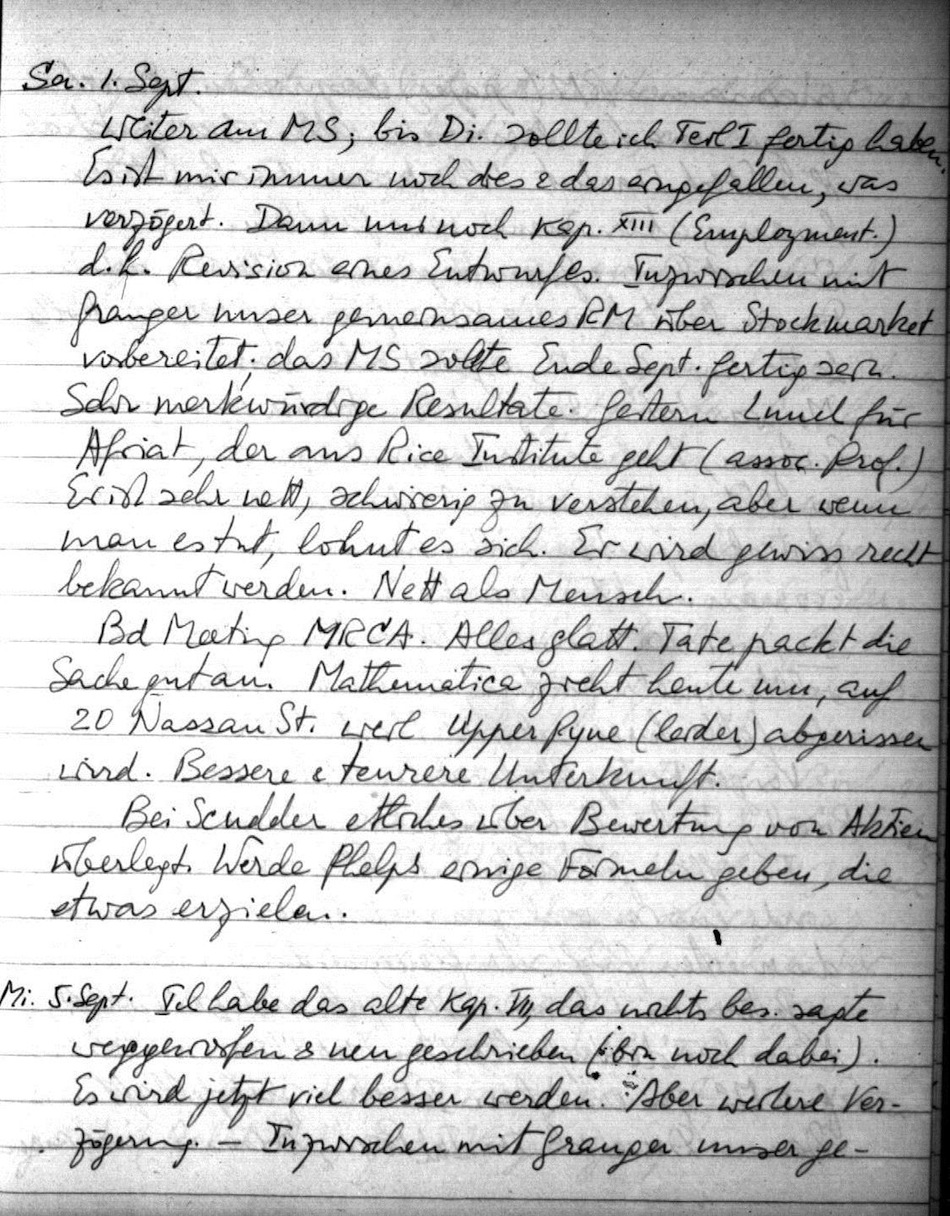 Sa. 1. Sept.
Weiter am MS; bis Di. sollte ich Teil I fertig haben.
Es ist mir immer noch dies & das eingefallen, was
verzögert. Dann nur noch Kap. XIII (Employment.)
d.h. Revision eines Entwurfes. Inzwischen mit
Granger unser gemeinsames RM über Stockmarket
vorbereitet; das MS sollte Ende Sept. fertig sein.
Sehr merkwürdige Resultate. Gestern Lunch für
Afriat, der ans Rice Institute geht (assoc. Prof.)
Er ist sehr nett, schwierig zu verstehen, aber wenn
man es tut, lohnt es sich. Er wird gewiss recht
bekannt werden. Nett als Mensch.
Bd Meeting MRCA. Alles glatt. Tate packt die
Sache gut an. Mathematica zieht heute um, auf
20 Nassau St. weil Upper Pyne (leider) abgerissen
wird. Bessere & teurere Unterkunft.
Bei Scudder etliches über Bewertung von Aktien
überlegt. Werde Phelps einige Formeln geben, die
etwas erzielen.
Mi. 5. Sept. Ich habe das alte Kap. VII, das nichts bes. sagte
weggeworfen & neu geschrieben (bin noch dabei).
Es wird jetzt viel besser werden. Aber weitere Ver-
zögerung. — Inzwischen mit Granger unser ge-